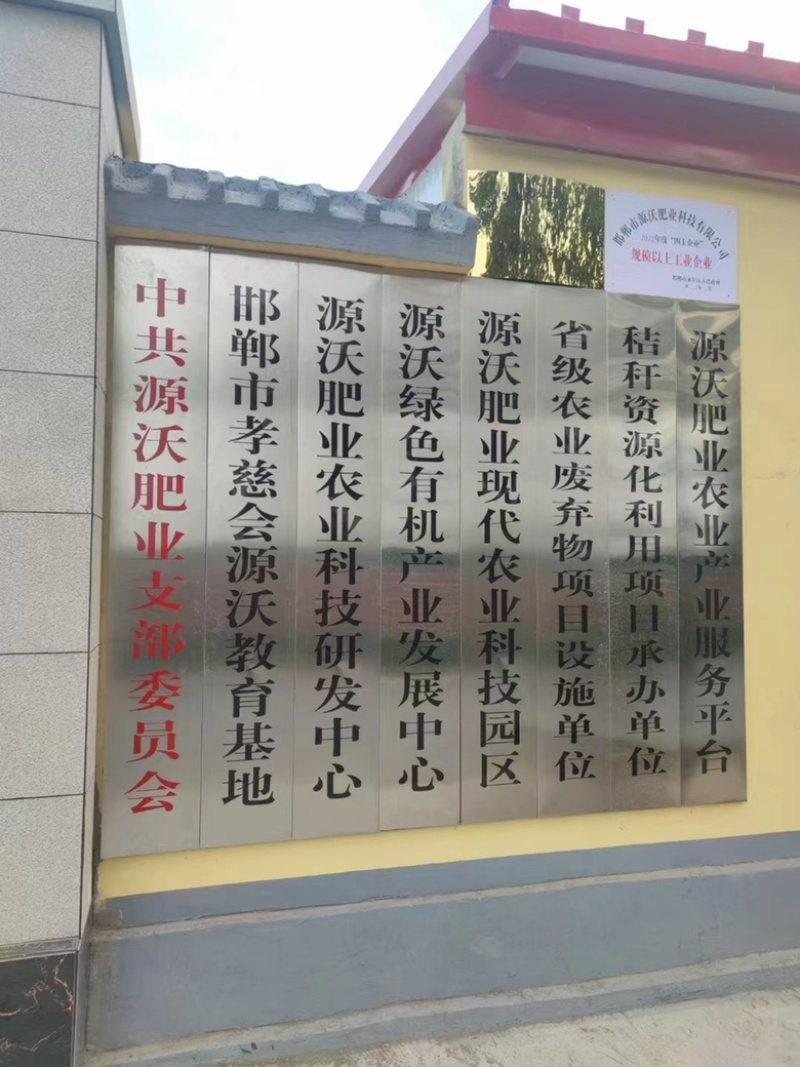 邯郸市源沃肥业科技有限公司
2022年度“四上企业”
规模以上工业企业
中共源沃肥业支部委员会
邯郸市孝慈会源沃教育基地
源沃肥业农业科技研发中心
源沃绿色有机产业发展中心
源沃肥业现代农业科技园区
省级农业废弃物项目设施单位
秸秆资源化利用项目承办单位
源沃肥业农业产业服务平台